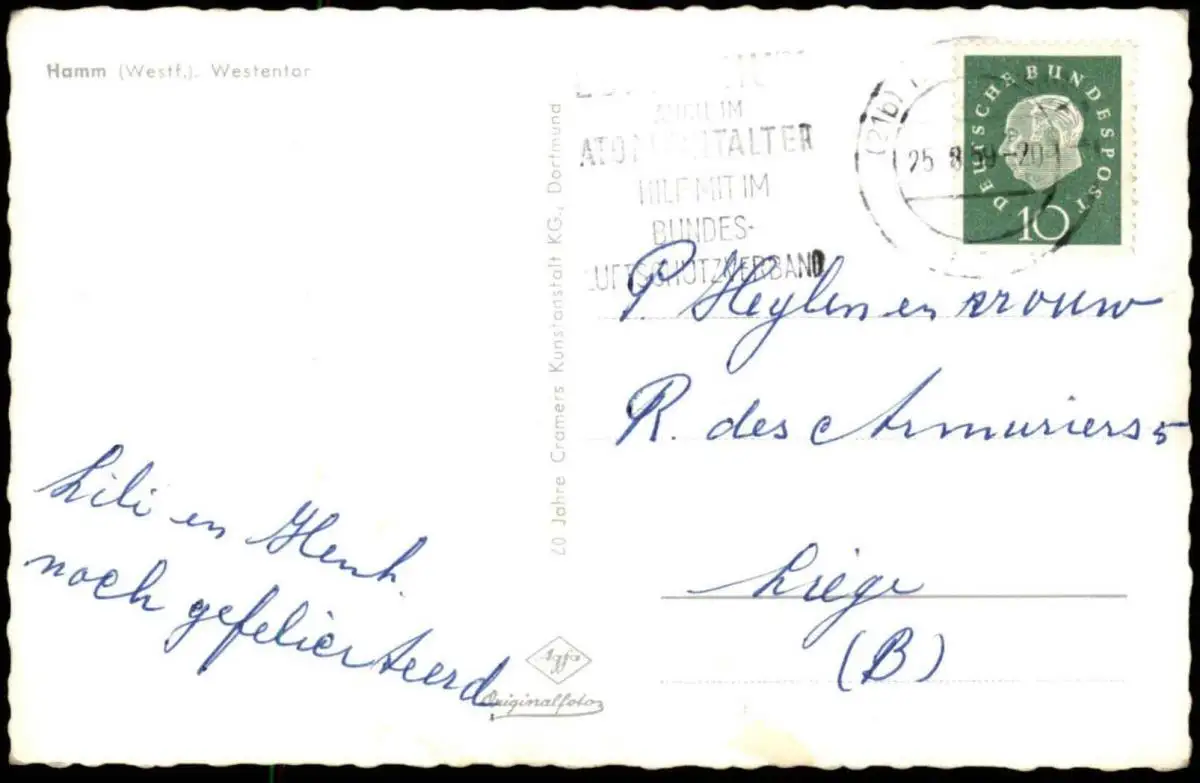 Hamm (Westf.). Westentor
AUCH IM
ATOMZEITALTER
HILF MIT IM
BUNDES-
LUFTSCHUTZVERBAND
(21b)
25.8.59-20
DEUTSCHE BUNDESPOST
10
20 Jahre Cramers Kunstanstalt KG., Dortmund
P. Heylen en vrouw
R. des Armuriers 5
Liège
(B)
Lili en Henk.
noch gefelicerteerd
Agfa
Originalfoto